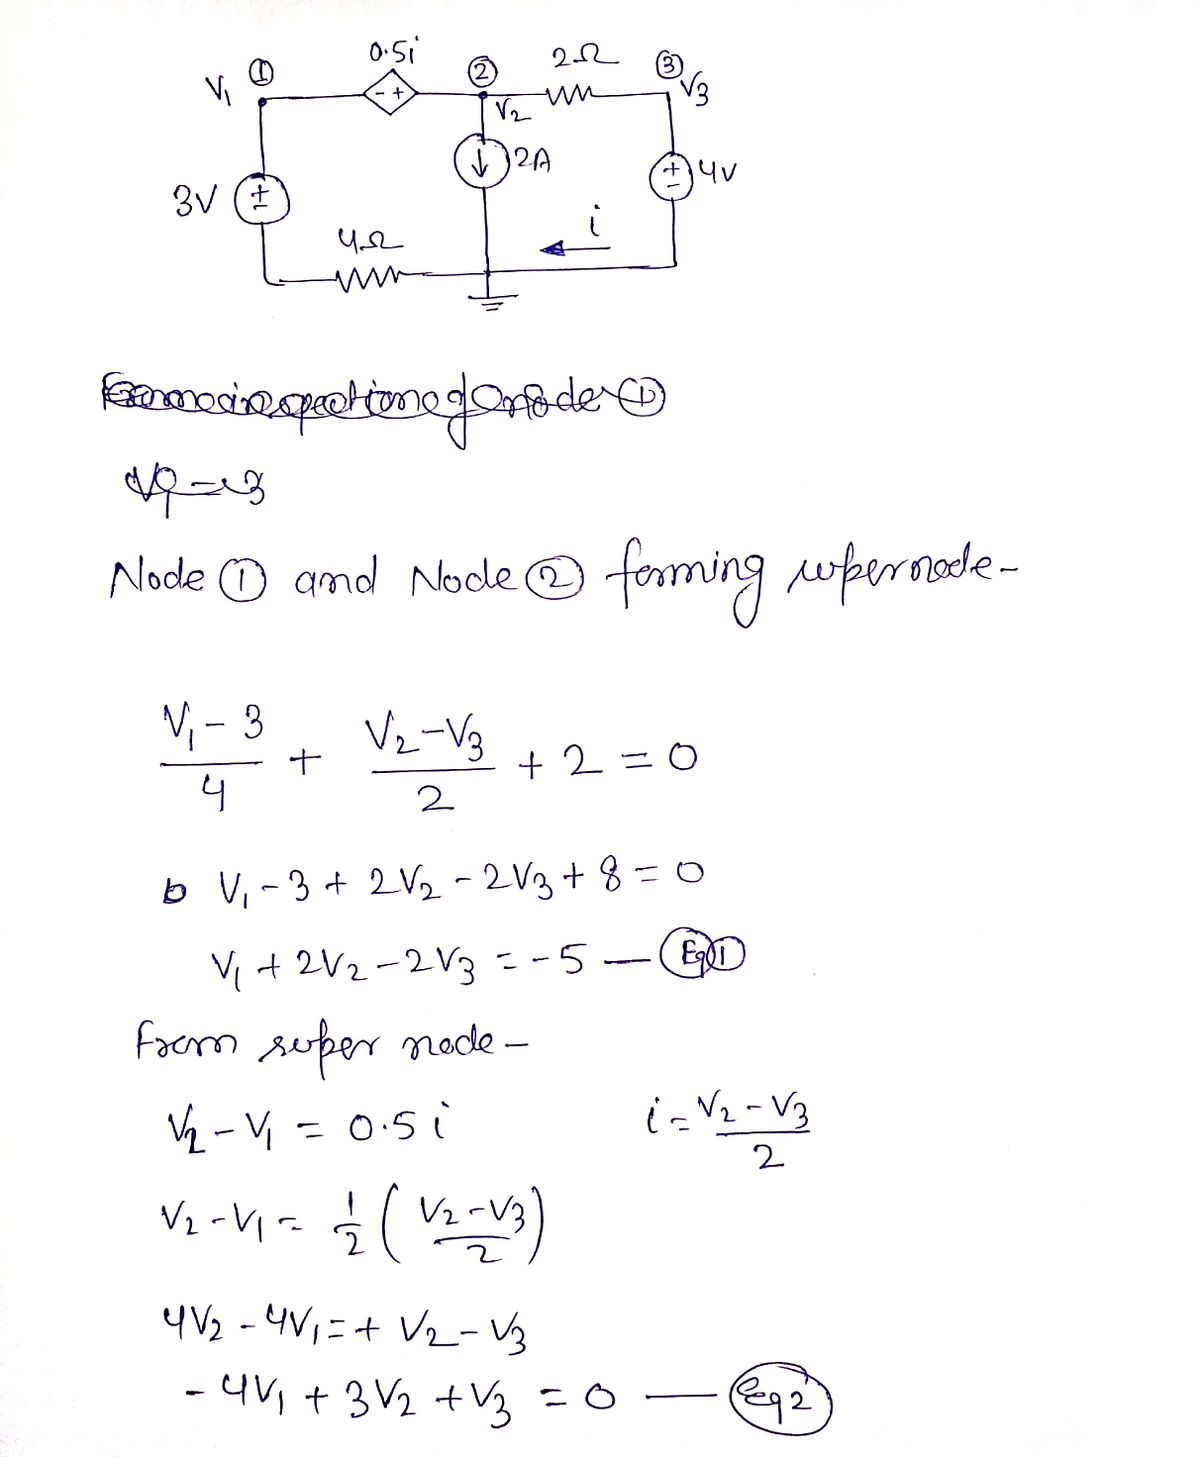 0.5i
① ② 2Ω ③
V₁ - + V₂ V₃
2A
3V + - + - 4V
i
4Ω
Node ① and Node ② forming supernode -
(V₁ - 3)/4 + (V₂ - V₃)/2 + 2 = 0
V₁ - 3 + 2V₂ - 2V₃ + 8 = 0
V₁ + 2V₂ - 2V₃ = -5 — Eq 1
From super node -
V₂ - V₁ = 0.5 i i = (V₂ - V₃)/2
V₂ - V₁ = 1/2 ( (V₂ - V₃)/2 )
4V₂ - 4V₁ = + V₂ - V₃
- 4V₁ + 3V₂ + V₃ = 0 — Eq 2